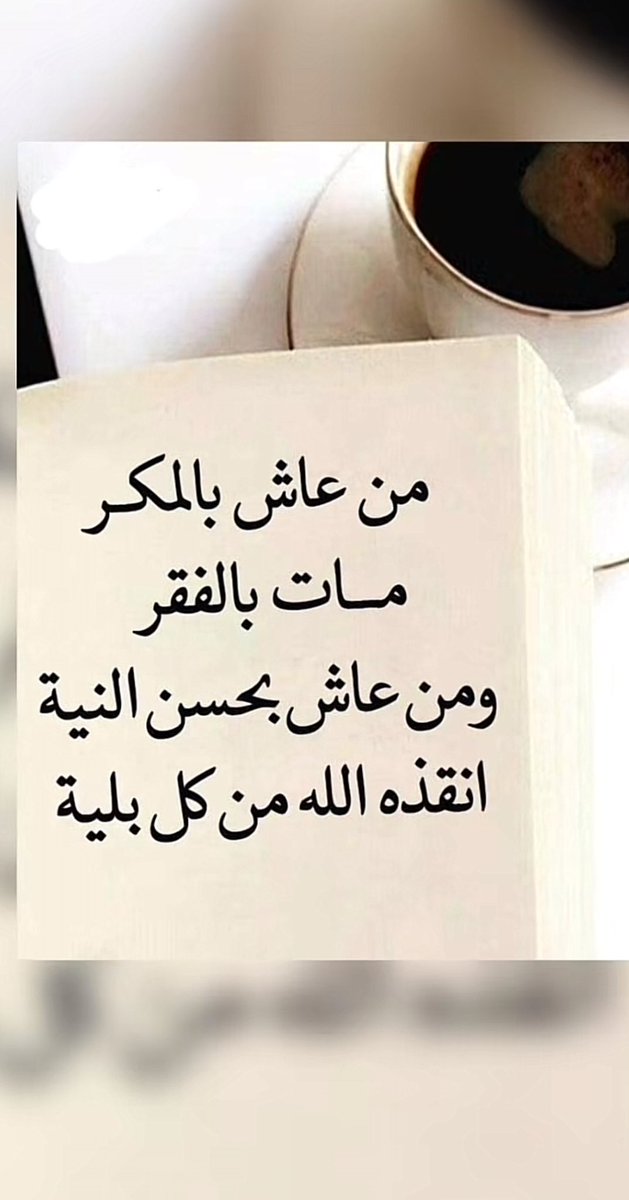 من عاش بالمكـر
مــات بالفقر
ومن عاش بحسن النية
انقذه الله من كل بلية